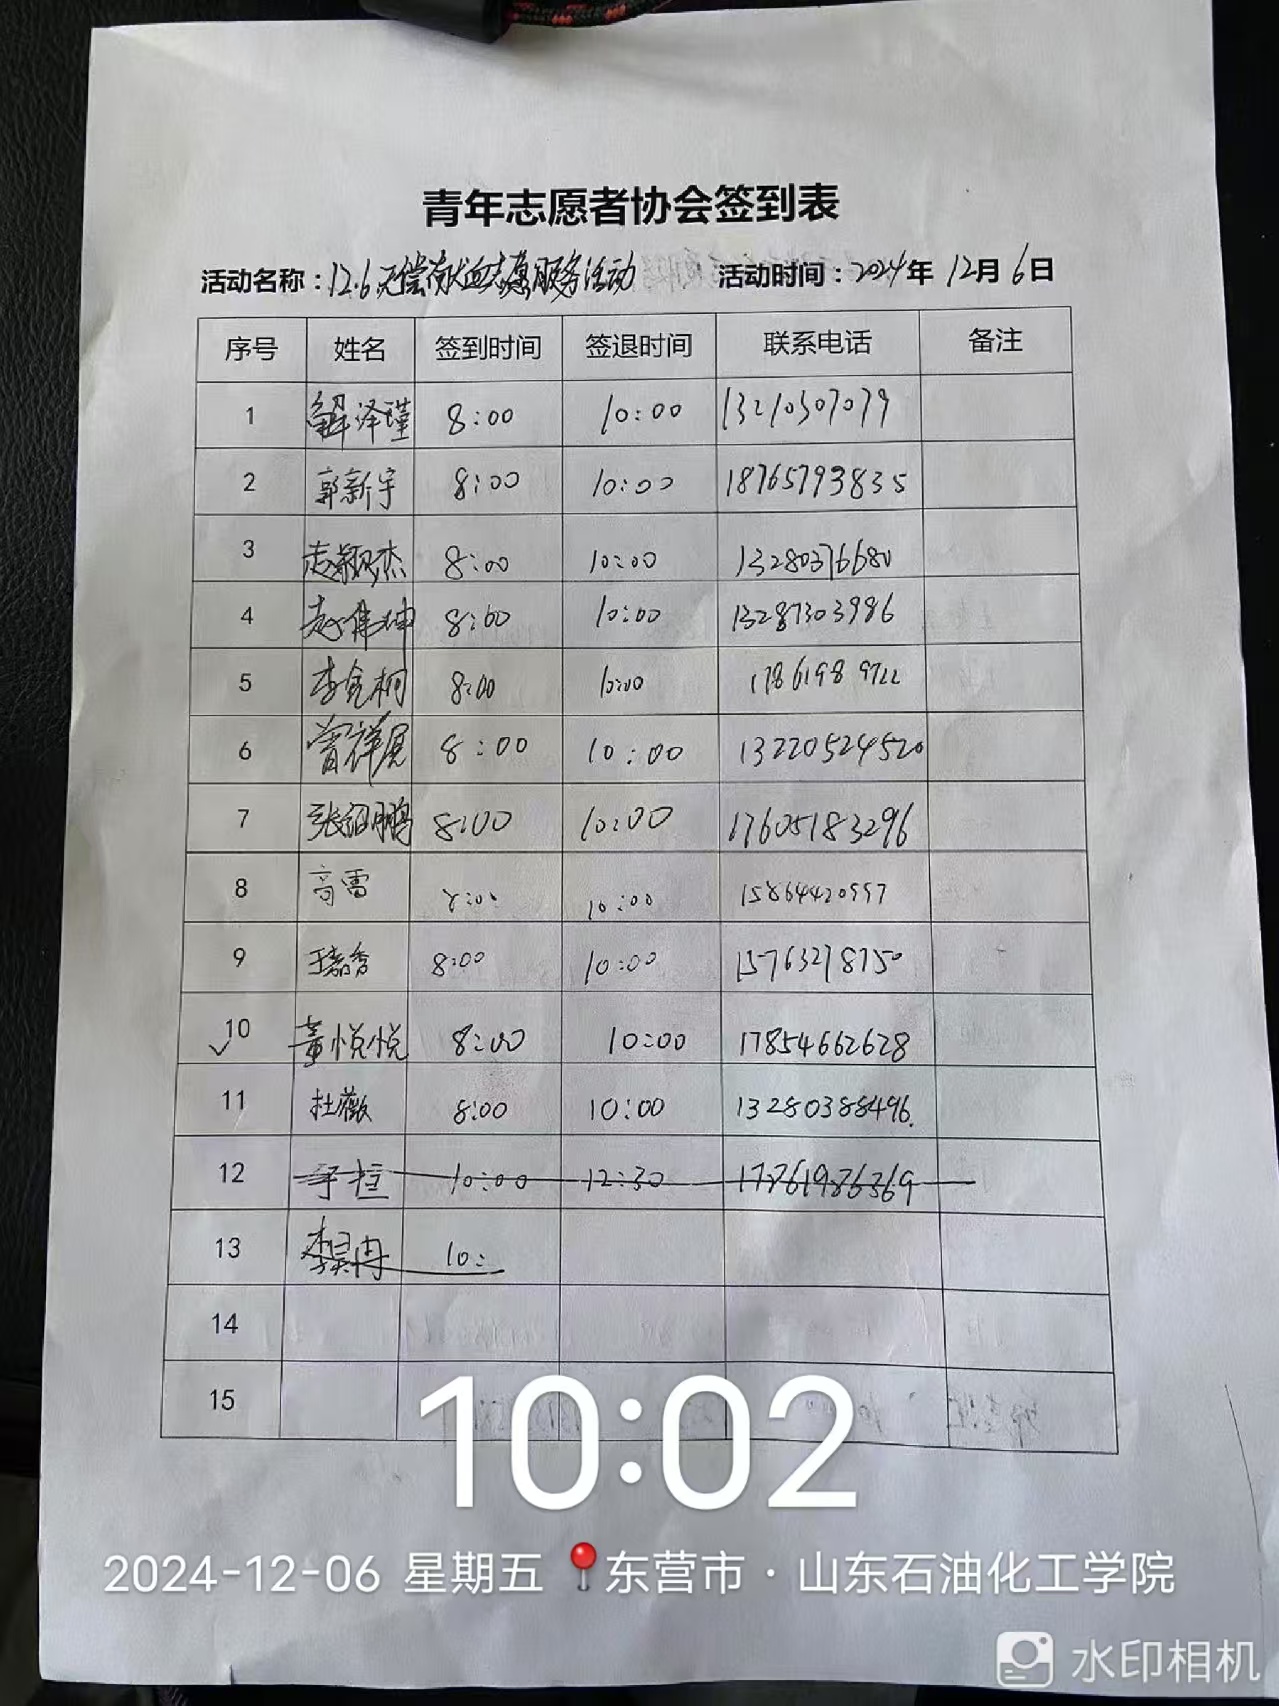 青年志愿者协会签到表
活动名称：12.6无偿献血志愿服务活动 活动时间：2024年 12月 6日
序号 姓名 签到时间 签退时间 联系电话 备注
1 解泽瑾 8:00 10:00 13210307079
2 郭新宇 8:00 10:00 18765793835
3 颖杰 8:00 10:00 13280376680
4 赵伟坤 8:00 10:00 13287303986
5 李金桐 8:00 10:00 17861989722
6 曾祥晨 8:00 10:00 13220524520
7 张鹏 8:00 10:00 17605183296
8 高雷 8:00 10:00 15864420997
9 王嘉秀 8:00 10:00 15763278750
10 董悦悦 8:00 10:00 17854662628
11 杜薇 8:00 10:00 13280388496.
12 10:00 12:30 17861986369
13 李昊冉 10:
14
15
10:02
2024-12-06 星期五 东营市·山东石油化工学院
水印相机